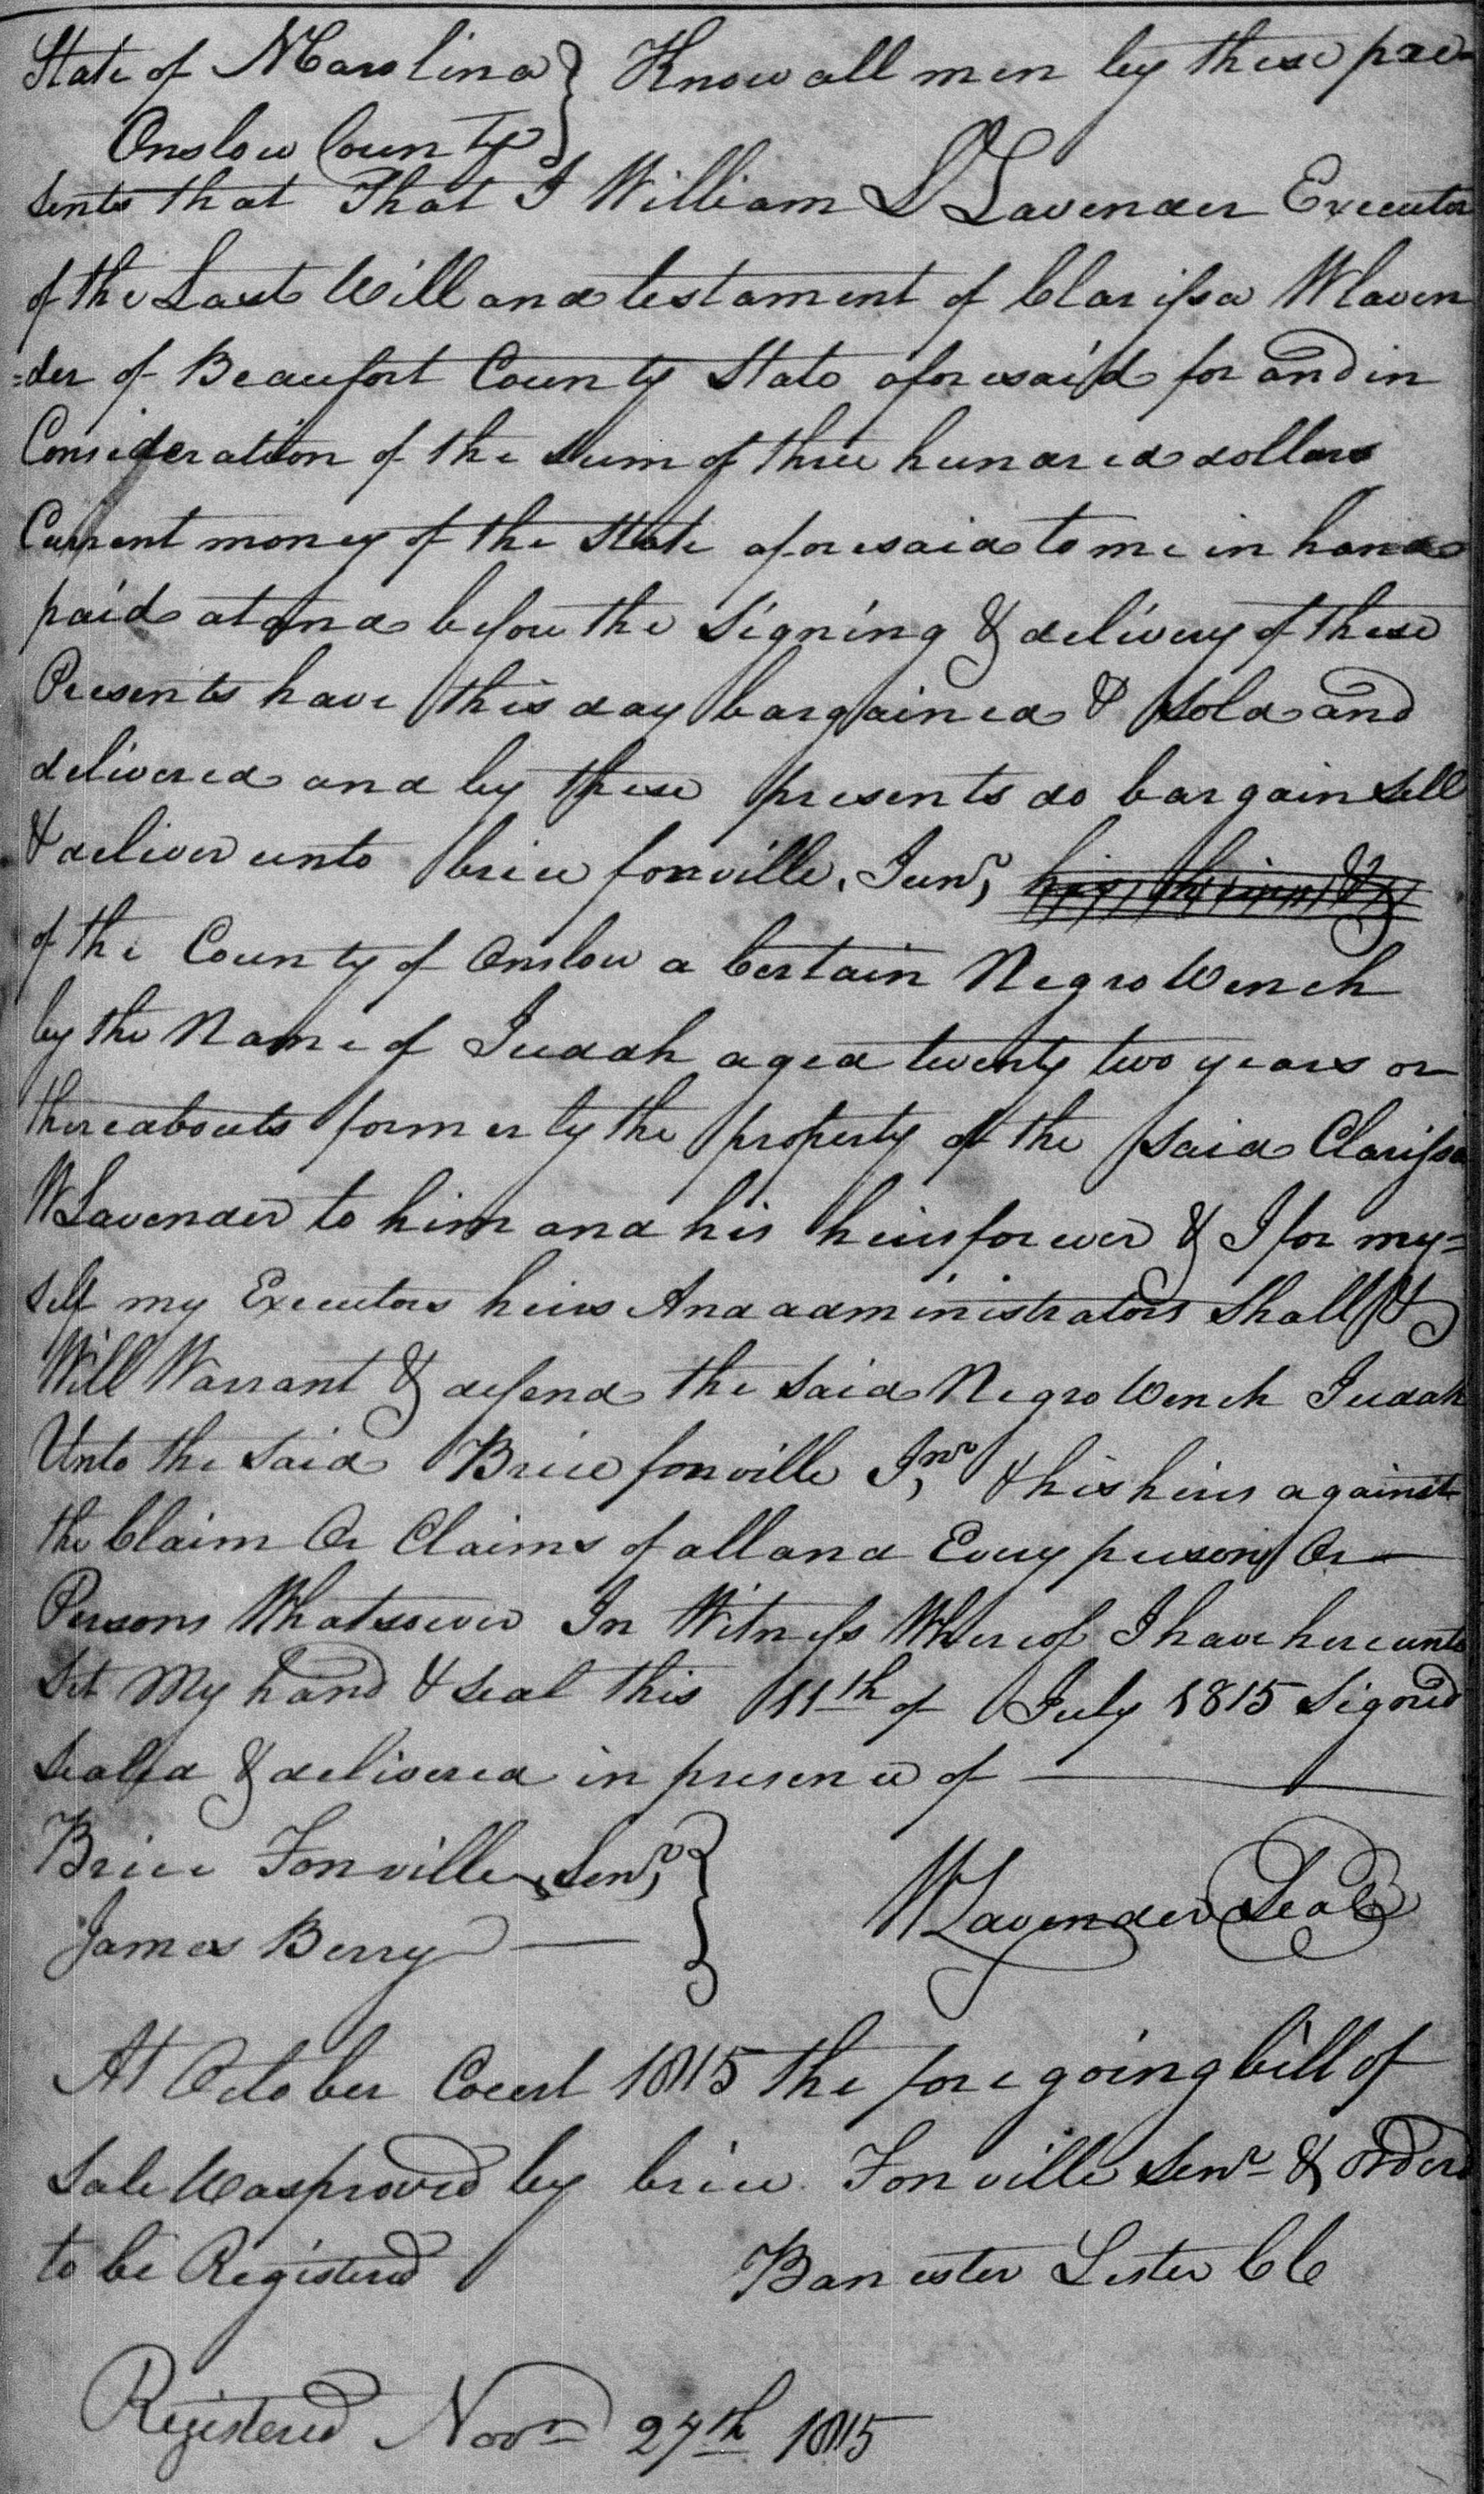 State of N Carolina } Know all men by these pre-
Onslow County
sents that That I William L Lavender Executor
of the Last Will and testament of Clarissa W Laven
=der of Beaufort County State aforesaid for and in
Consideration of the Sum of three hundred dollars
Current money of the State aforesaid to me in hand
paid at and before the Signing & delivery of these
Presents have this day bargained & Sold and
delivered and by these presents do bargain Sell
& deliver unto brice fonville, Junr, his heirs &
of the County of Onslow a Certain Negro Wench
by the Name of Judah aged twenty two years or
thereabouts formerly the property of the Said Clarissa
W Lavender to him and his heirs forever & I for my=
self my Executors heirs And administrators Shall &
Will Warrant & defend the Said Negro Wench Judah
Unto the Said Brice fonville Jnr, & his heirs against
the Claim Or Claims of all and Every person Or
Persons Whatsoever In Witness Whereof I have hereunto
Set My hand & Seal this 11th of July 1815 Signed
Sealed & delivered in presence of
Brice Fonville, Senr, }
W Lavender Seal
James Berry
At October Court 1815 the foregoing bill of
Sale Was proved by brice Fonville Senr & orderd
to be Registered
Banester Lester CC
Registered Novr 27th 1815